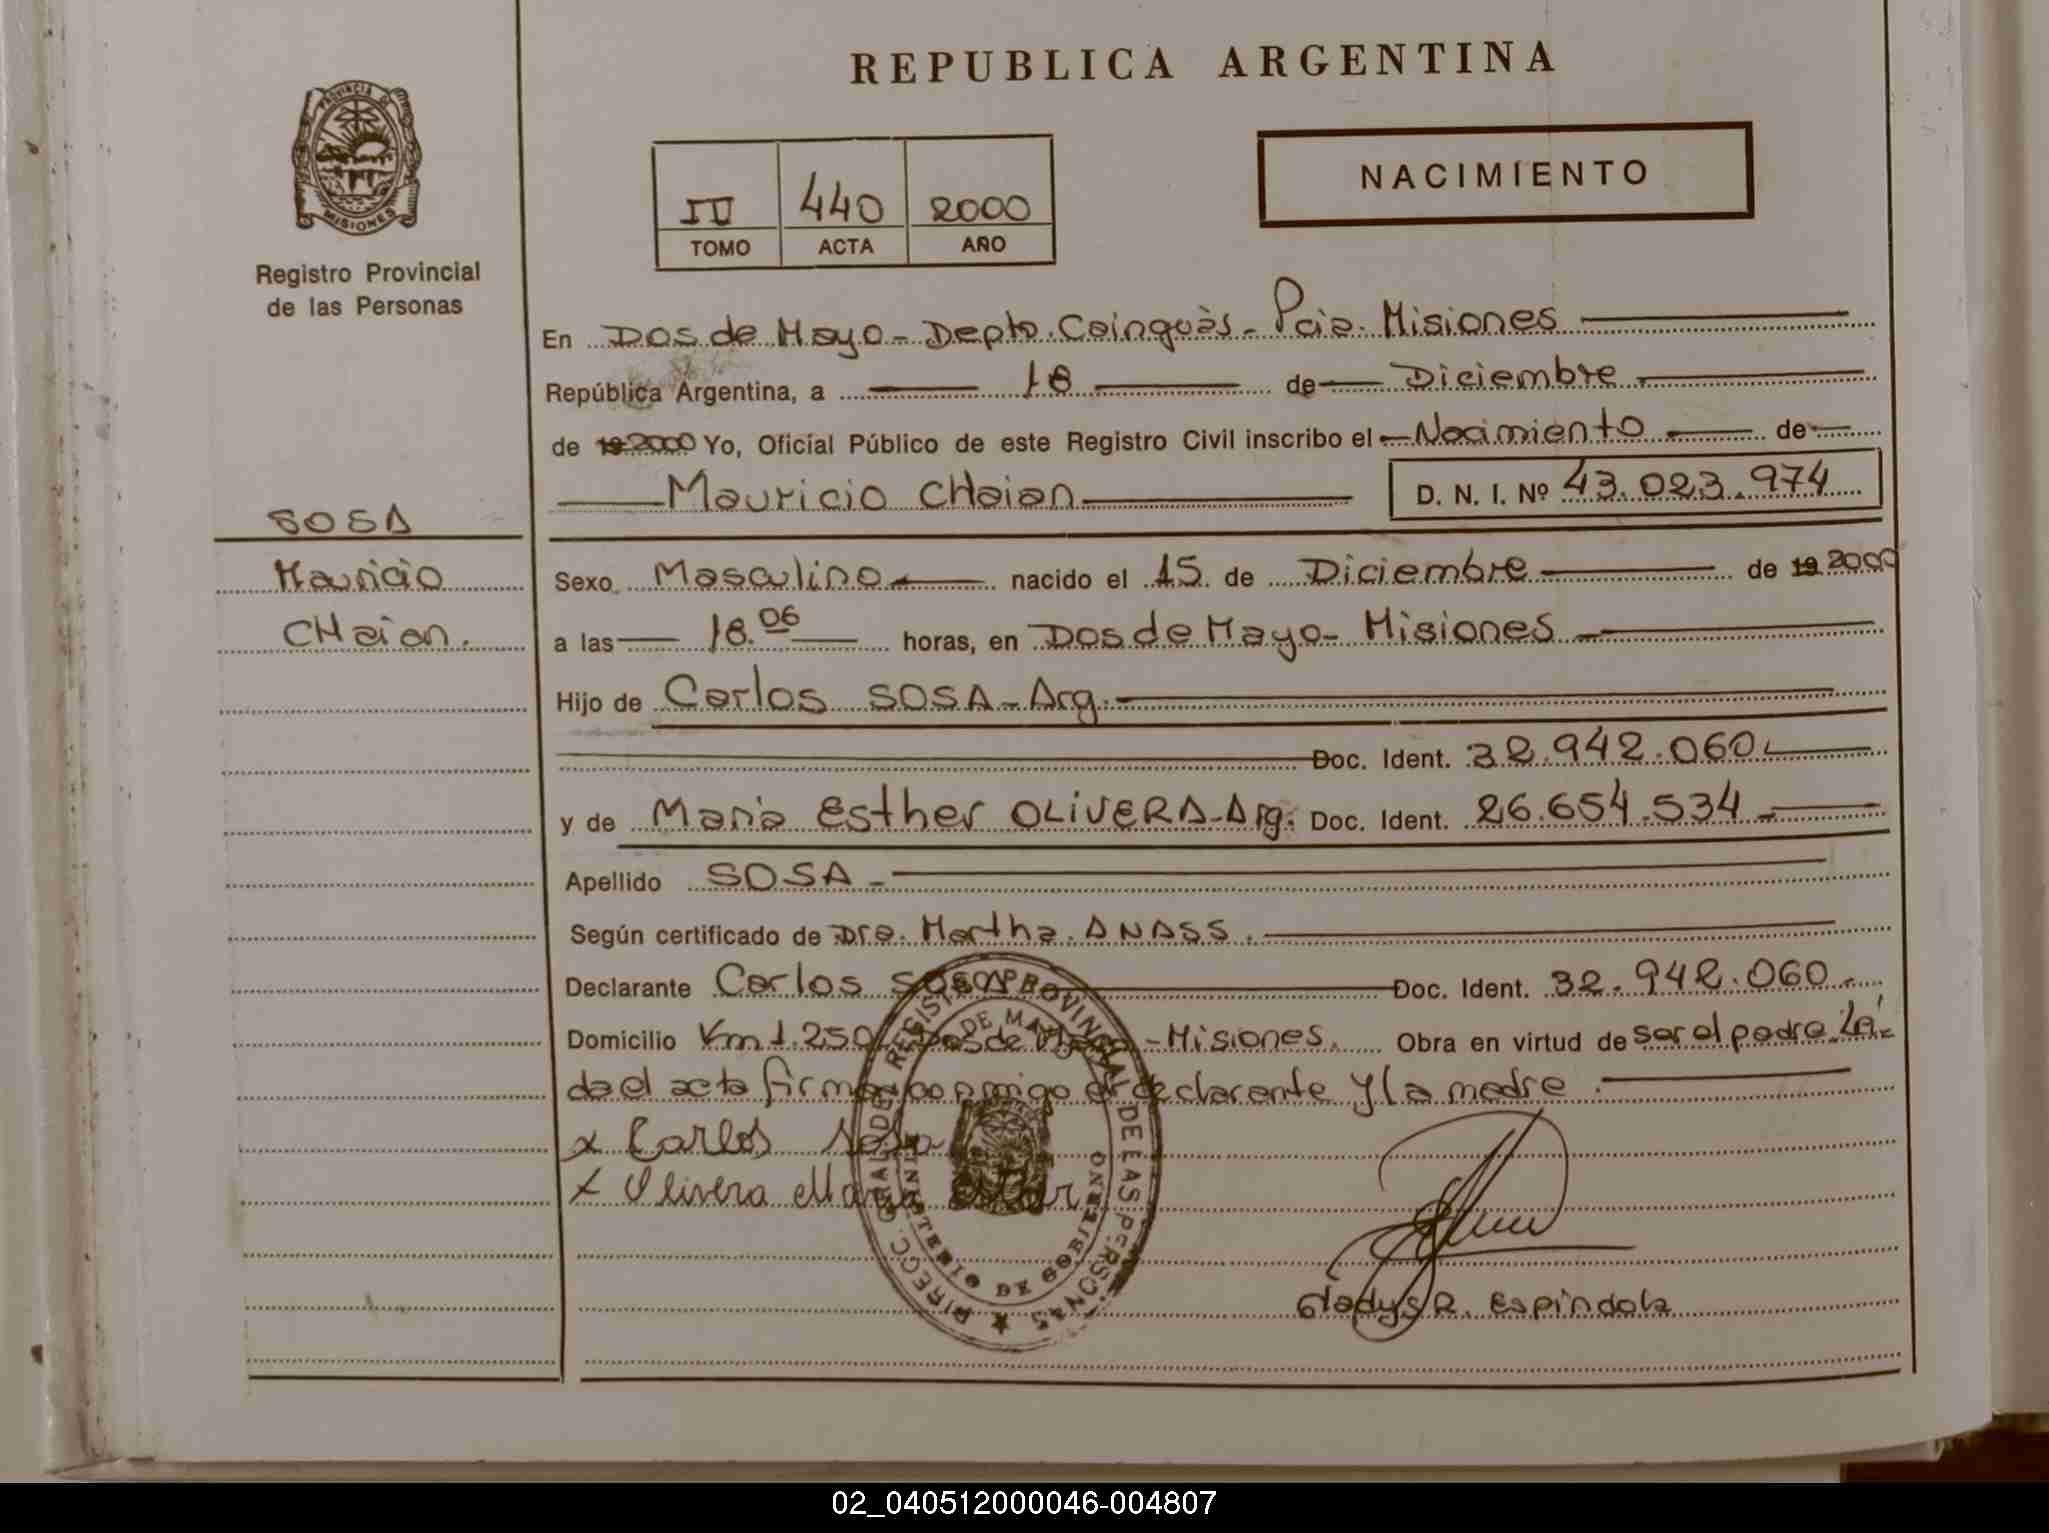 REPUBLICA ARGENTINA
PROVINCIA DE
MISIONES
Registro Provincial
de las Personas
NACIMIENTO
440 2000
TOMO ACTA AÑO
En Dos de Mayo - Depto. Cainguàs - Pcia. Misiones
República Argentina, a 18 de Diciembre
de 19 2000 Yo, Oficial Público de este Registro Civil inscribo el Nacimiento de
Mauricio CHaian D. N. I. Nº 43.023.974
SOSA
Mauricio
CHaian.
Sexo Masculino nacido el 15 de Diciembre de 19 2000
a las 18.06 horas, en Dos de Mayo - Misiones
Hijo de Carlos SOSA - Arg.
Doc. Ident. 32.942.060
y de Maria Esther OLIVERA - Arg. Doc. Ident. 26.654.534
Apellido SOSA
Según certificado de Dra. Martha ANASS.
Declarante Carlos SOSA Doc. Ident. 32.942.060
Domicilio Km 1.250 Dos de Mayo - Misiones. Obra en virtud de ser el padre. Leí
da el acta firman conmigo el declarante y la madre.
x Carlos Sosa
x Olivera Maria Ester
DIRECC. GRAL. DEL REGISTRO PROVINCIAL DE LAS PERSONAS
DOS DE MAYO
MINISTERIO DE GOBIERNO
Gladys R. Espindola
02_040512000046-004807